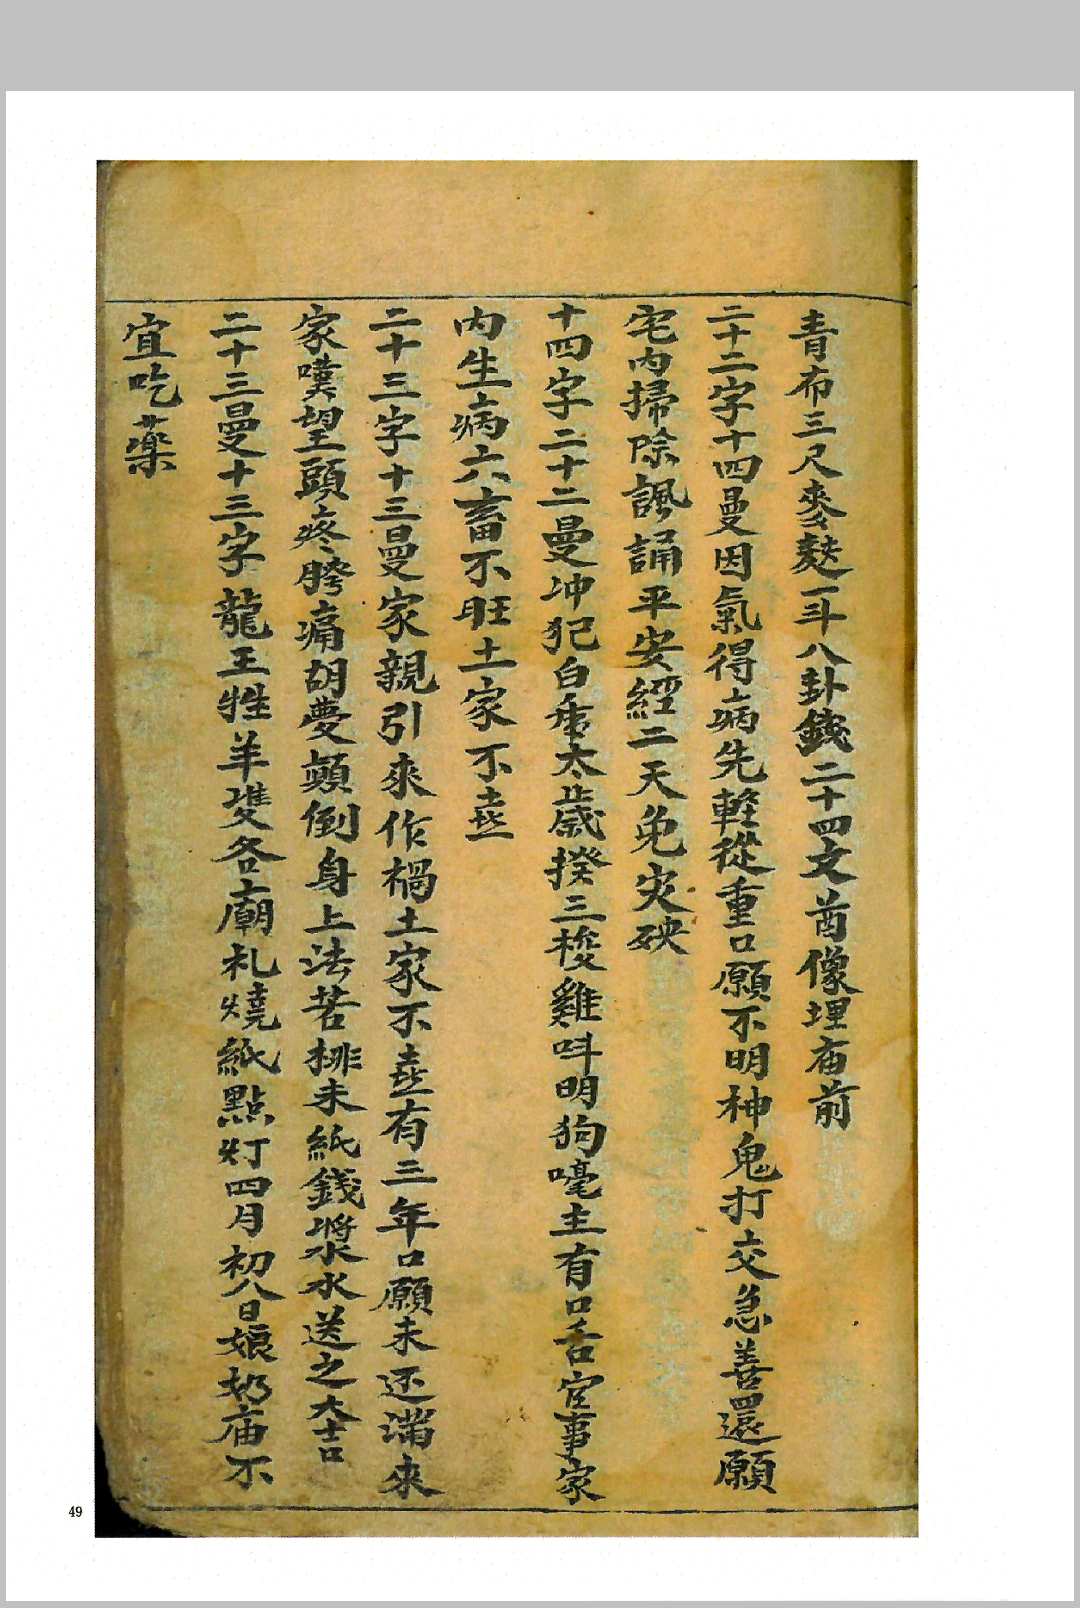 青布三尺麥麩一斗八卦錢二十四文酋像埋庙前
二十二字十四曼因氣得病先輕從重口願不明神鬼打交急善還願
宅内掃除諷誦平安經二天免灾殃
十四字二十二曼冲犯白虎太歳揆三梭雞呌明狗嚎主有口舌官事家
内生病六畜不旺土家不㐂
二十三字十三曼家親引來作禍土家不㐂有三年口願未还満來
家嘆望頭疼胯痛胡夢顛倒身上法苦排未紙錢漿水送之大吉
二十三曼十三字龍王牲羊㕠各廟礼燒紙點灯四月初八日娘奶庙不
宜吃薬
49